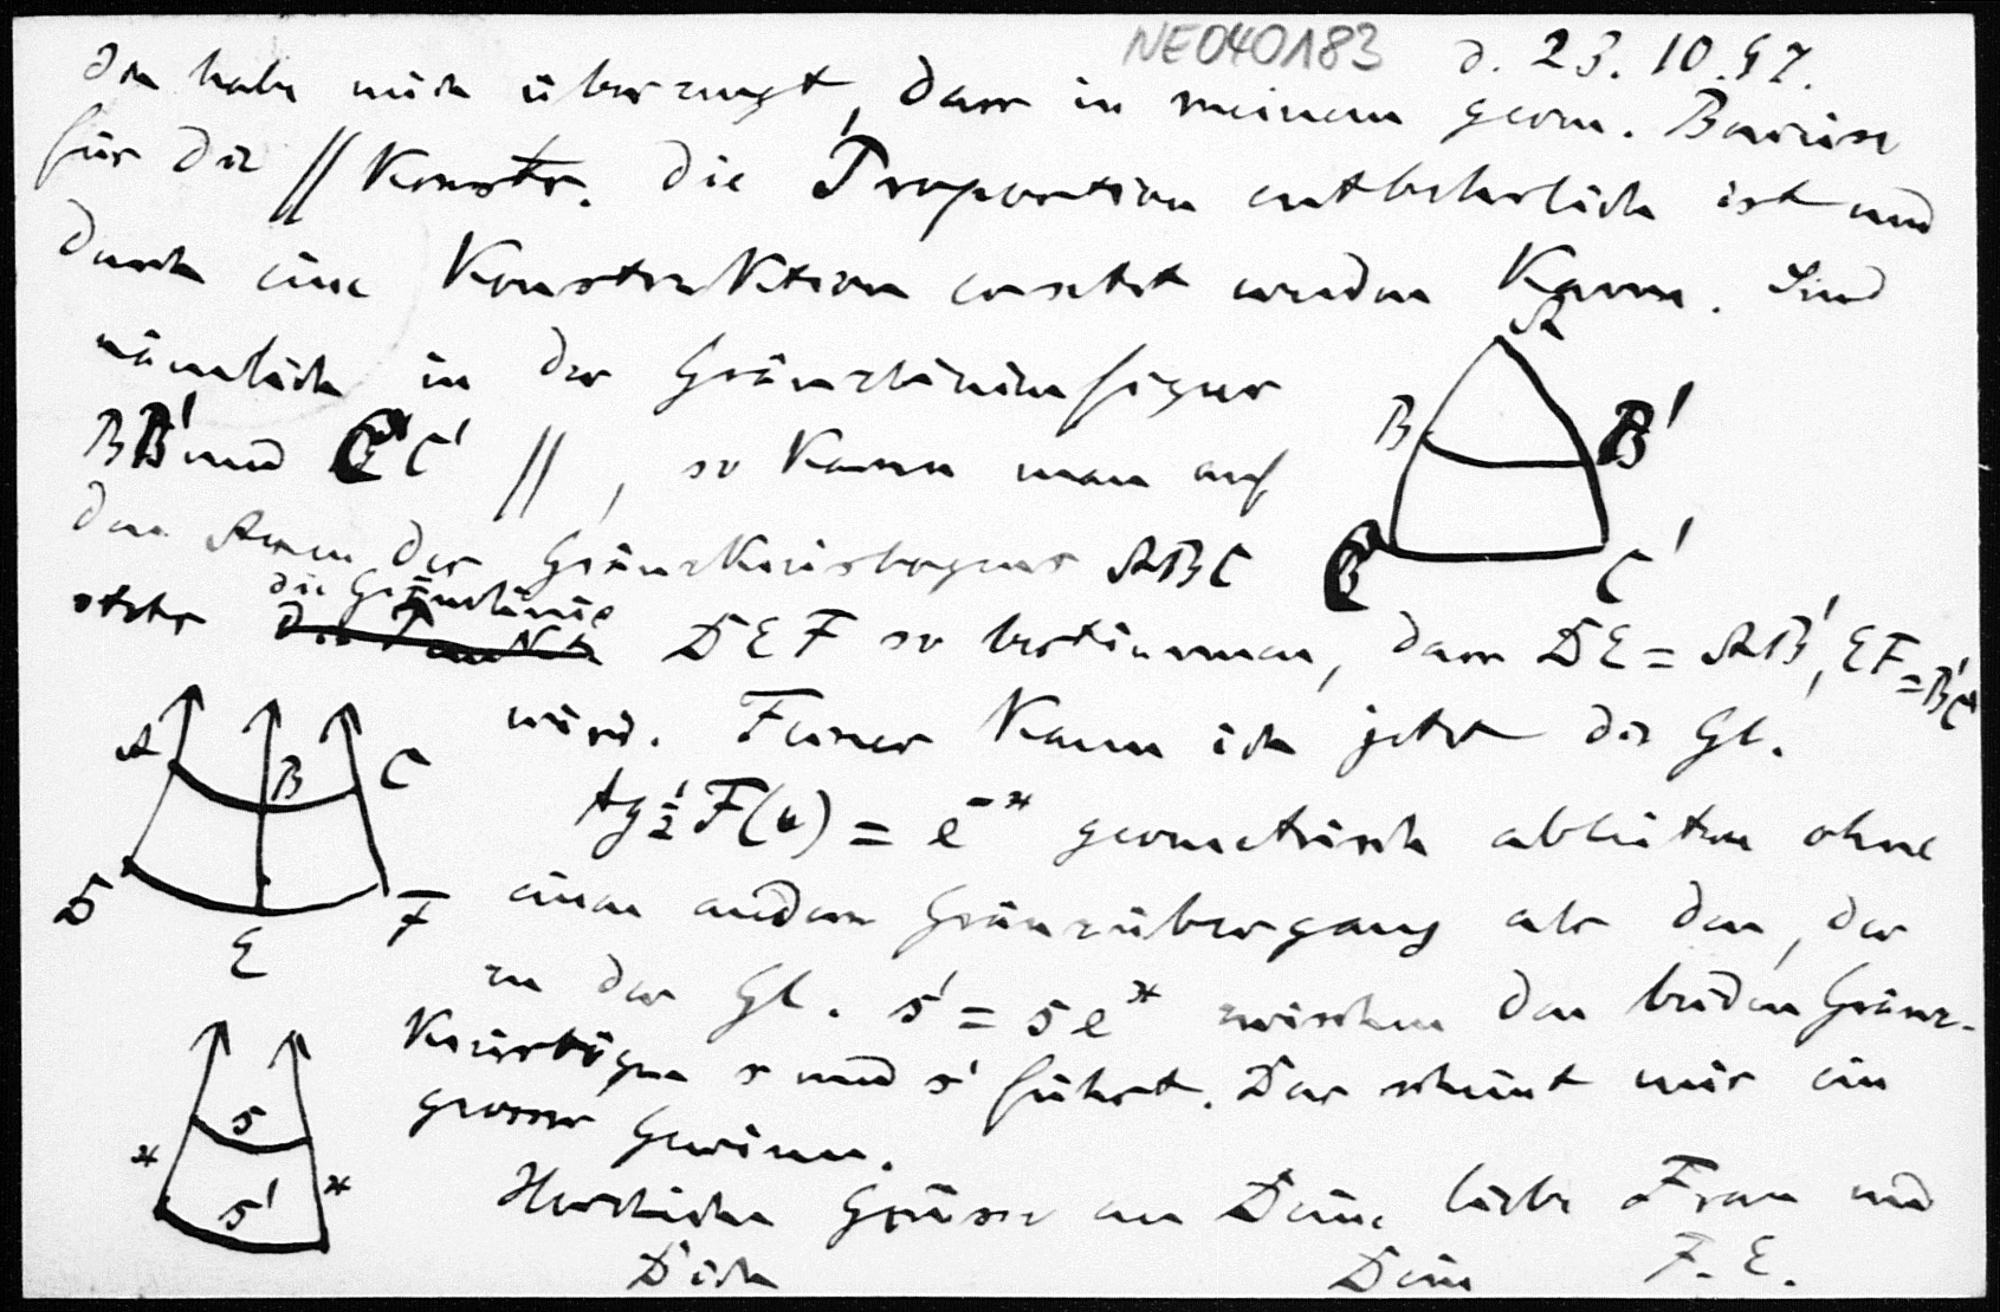 NE040183 d. 23.10.97.
Ich habe mich überzeugt, dass in meinem geom. Beweise
für die // Konstr. die Proportion entbehrlich ist und
durch eine Konstruktion ersetzt werden kann. Sind
nämlich in der Gränzlinienfigur
BB' und CC' //, so kann man auf
den Axen des Gränzkreisbogens ABC
stets die Gränzlinie DEF so bestimmen, dass DE = AB', EF = B'C'
wird. Ferner kann ich jetzt die Gl.
tg ½ F(x) = e^-x geometrisch ableiten ohne
einen andern Gränzübergang als den, der
zu der Gl. s' = s e^x zwischen den beiden Gränz-
kreisbögen s und s' führt. Das scheint mir ein
grosser Gewinn.
Herzliche Grüsse an Deine liebe Frau und
Dich Dein F. E.
A
B B'
C C'
A B C
D E F
s
x x
s'